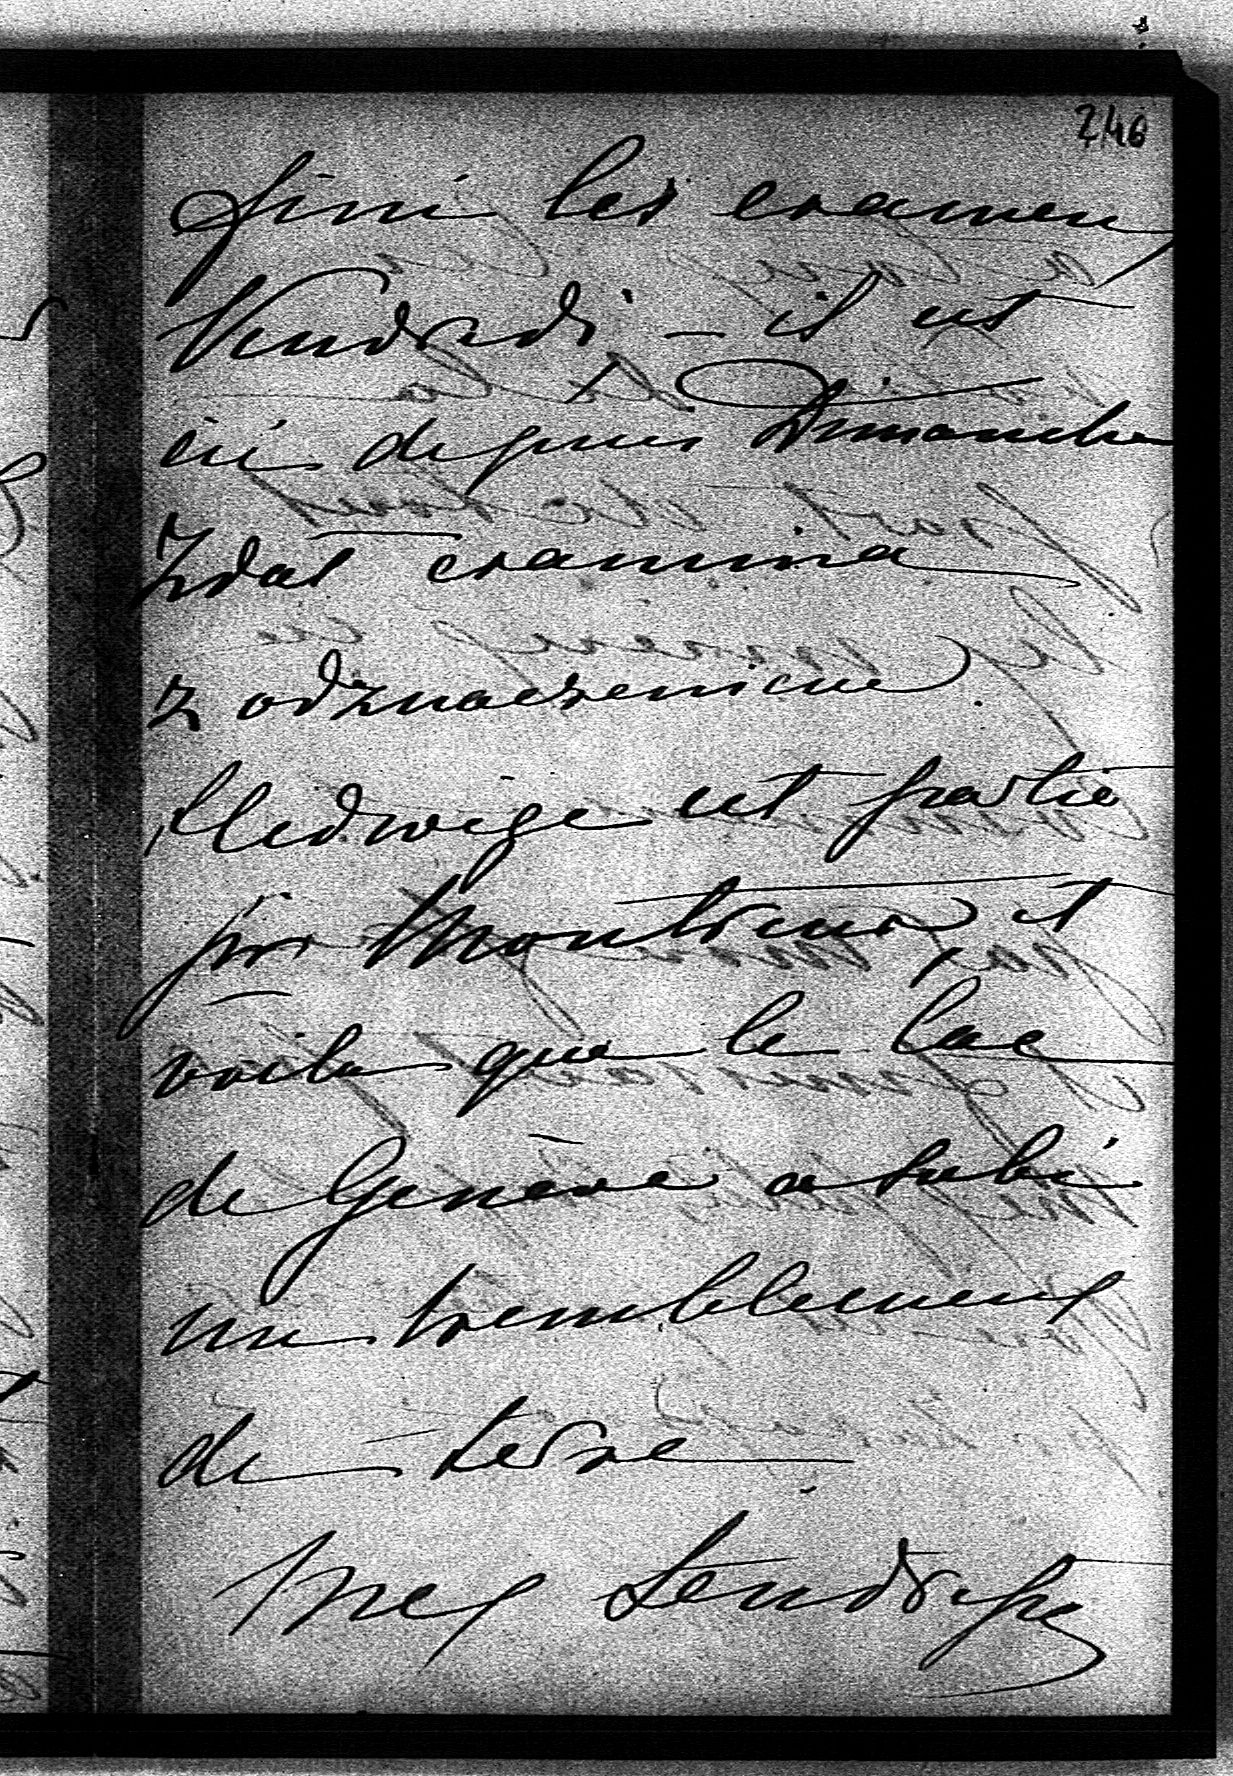 246
fini les examen,
Vendredi – il est
ici depuis Dimanche
Zdał examina
z odznaczeniem.
Hedwige est partie
pr Montreux, et
voila que le lac
de Genève a subi
un tremblement
de terre
Mes tendresses